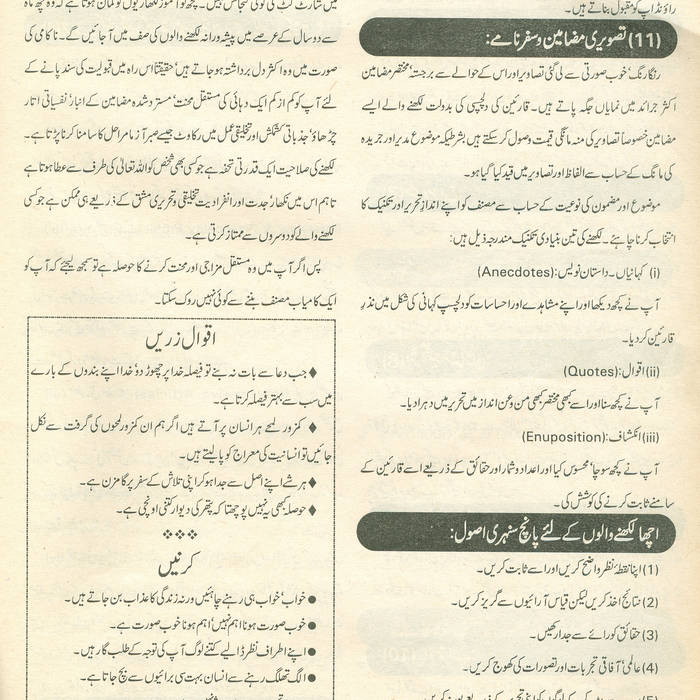 راؤنڈ اپ کو مقبول بناتے ہیں۔
(11) تصویری مضامین و سفرنامے:
رنگا رنگ‘ خوب صورتی سے لی گئی تصاویر اور اس کے حوالے سے برجستہ‘ مختصر مضامین
اکثر جرائد میں نمایاں جگہ پاتے ہیں۔ قارئین کی دلچسپی کی بدولت لکھنے والے ایسے
مضامین خصوصاً تصاویر کی منہ مانگی قیمت وصول کر سکتے ہیں بشرطیکہ موضوع مدیر اور جریدہ
کی مانگ کے حساب سے الفاظ اور تصاویر میں قید کیا گیا ہو۔
موضوع اور مضمون کی نوعیت کے حساب سے مصنف کو اپنے انداز تحریر اور تکنیک کا
انتخاب کرنا چاہئے۔ لکھنے کی تین بنیادی تکنیک مندرجہ ذیل ہیں:
(i) کہانیاں۔ داستان نویس: (Anecdotes)
آپ نے کچھ دیکھا اور اپنے مشاہدے اور احساسات کو دلچسپ کہانی کی شکل میں نذرِ
قارئین کر دیا۔
(ii) اقوال: (Quotes)
آپ نے کچھ سنا اور اسے کبھی مختصر کبھی من و عن انداز میں تحریر میں دہرا دیا۔
(iii) انکشاف: (Enuposition)
آپ نے کچھ سوچا‘ محسوس کیا اور اعداد و شمار اور حقائق کے ذریعے اسے قارئین کے
سامنے ثابت کرنے کی کوشش کی۔
اچھا لکھنے والوں کے لئے پانچ سنہری اصول:
(1) اپنا نقطۂ نظر واضح کریں اور اسے ثابت کریں۔
(2) نتائج اخذ کریں لیکن قیاس آرائیوں سے گریز کریں۔
(3) حقائق کو رائے سے جدا رکھیں۔
(4) عالمی‘ آفاقی تجربات اور تصورات کی کھوج کریں۔
میں شارٹ کٹ کی کوئی گنجائش نہیں۔ کچھ نو آموز لکھاریوں کو گمان ہوتا ہے کہ وہ چھ ماہ
سے دو سال کے عرصے میں پیشہ ورانہ لکھنے والوں کی صف میں آ جائیں گے۔ ناکامی کی
صورت میں وہ اکثر دل برداشتہ ہو جاتے ہیں‘ حقیقتاً اس راہ میں قبولیت کی سند پانے کے
لئے آپ کو کم از کم ایک دہائی کی مستقل محنت‘ مسترد شدہ مضامین کے انبار‘ نفسیاتی اتار
چڑھاؤ‘ جذباتی کشمکش اور تخلیقی عمل میں رکاوٹ جیسے صبر آزما مراحل کا سامنا کرنا پڑتا ہے۔
لکھنے کی صلاحیت ایک قدرتی تحفہ ہے جو کسی بھی شخص کو اللہ تعالیٰ کی طرف سے عطا ہوتا ہے
تاہم اس میں نکھار‘ جدت اور انفرادیت تخلیقی و تحریری مشق کے ذریعے ہی ممکن ہے جو کسی
لکھنے والے کو دوسروں سے ممتاز کرتی ہے۔
پس اگر آپ میں وہ مستقل مزاجی اور محنت کرنے کا حوصلہ ہے تو سمجھ لیجئے کہ آپ کو
ایک کامیاب مصنف بننے سے کوئی نہیں روک سکتا۔
اقوال زریں
♦ جب دعا سے بات نہ بنے تو فیصلہ خدا پر چھوڑ دو‘ خدا اپنے بندوں کے بارے
میں سب سے بہتر فیصلہ کرتا ہے۔
♦ کمزور لمحے ہر انسان پر آتے ہیں اگر ہم ان کمزور لمحوں کی گرفت سے نکل
جائیں تو انسانیت کی معراج کو پا لیتے ہیں۔
♦ ہر شے اپنے اصل سے جدا ہو کر اپنی تلاش کے سفر پر گامزن ہے۔
♦ حوصلہ کبھی یہ نہیں پوچھتا کہ پتھر کی دیوار کتنی اونچی ہے۔
❖❖❖
کرنیں
● خواب‘ خواب ہی رہنے چاہئیں ورنہ زندگی کا عذاب بن جاتے ہیں۔
● خوب صورت ہونا اہم نہیں‘ اہم ہونا خوب صورت ہے۔
● اپنے اطراف نظر ڈالیے کتنے لوگ آپ کی توجہ کے طلب گار ہیں۔
● الگ تھلگ رہنے سے انسان بہت سی برائیوں سے بچ جاتا ہے۔